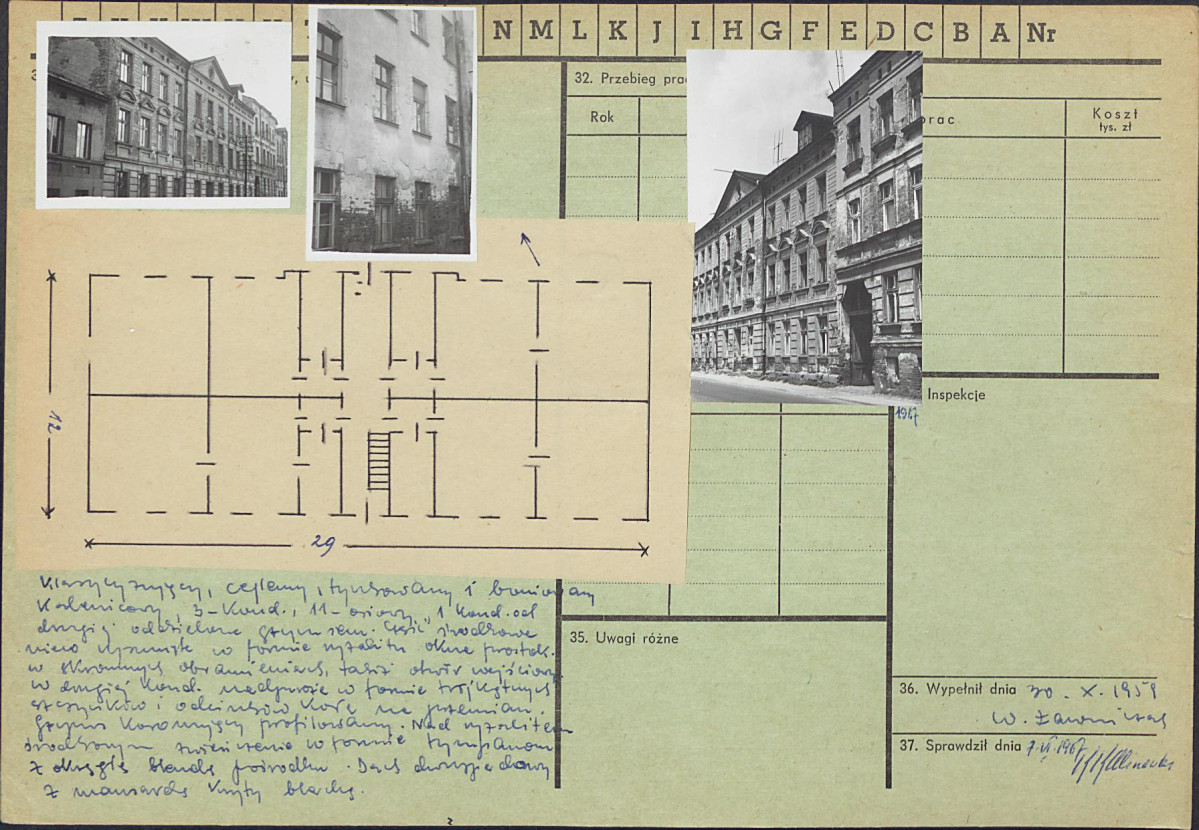 N M L K J I H G F E D C B A Nr
32. Przebieg prac
Rok
prac
Koszt
tys. zł
Inspekcje
1967
12
29
Klasycyzujący, ceglany, tynkowany i boniowany
3-kond., 11-osiowy, 1 kond. od
drugiej oddzielona gzymsem. Część środkowa
nieco wysunięta w formie ryzalitu okna prostok.
w skromnych obramieniach, także otwór wejściowy.
w drugiej kond. nadproże w formie trójkątnych
szczycików i odcinków koła na przemian.
Gzyms koronujący profilowany. Nad ryzalitem
środkowym zwieńczenie w formie tympanonu
z okrągłą blendą pośrodku. Dach dwuspadowy
z mansardą kryty blachą.
35. Uwagi różne
36. Wypełnił dnia 30. X. 1959
37. Sprawdził dnia 7 VI 1967
2